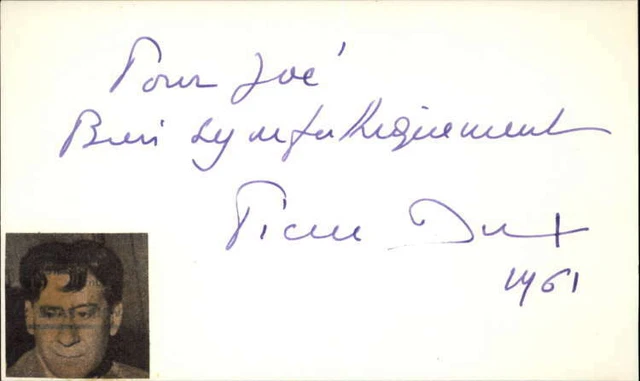 Pour José
Bien sympathiquement
Pierre Dux
1961